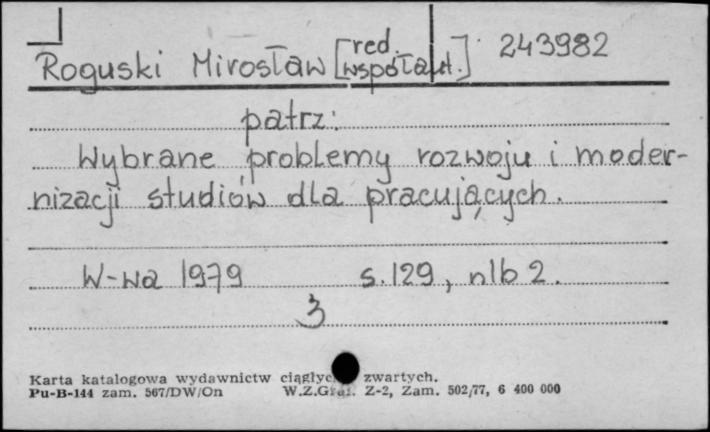 Roguski Mirosław [red. współaut.] 243982
patrz:
Wybrane problemy rozwoju i moder-
nizacji studiów dla pracujących.
W-wa 1979 s. 129, nlb 2.
3
Karta katalogowa wydawnictw ciągłych zwartych.
Pu-B-144 zam. 567/DW/On W.Z.Graf. Z-2, Zam. 502/77, 6 400 000